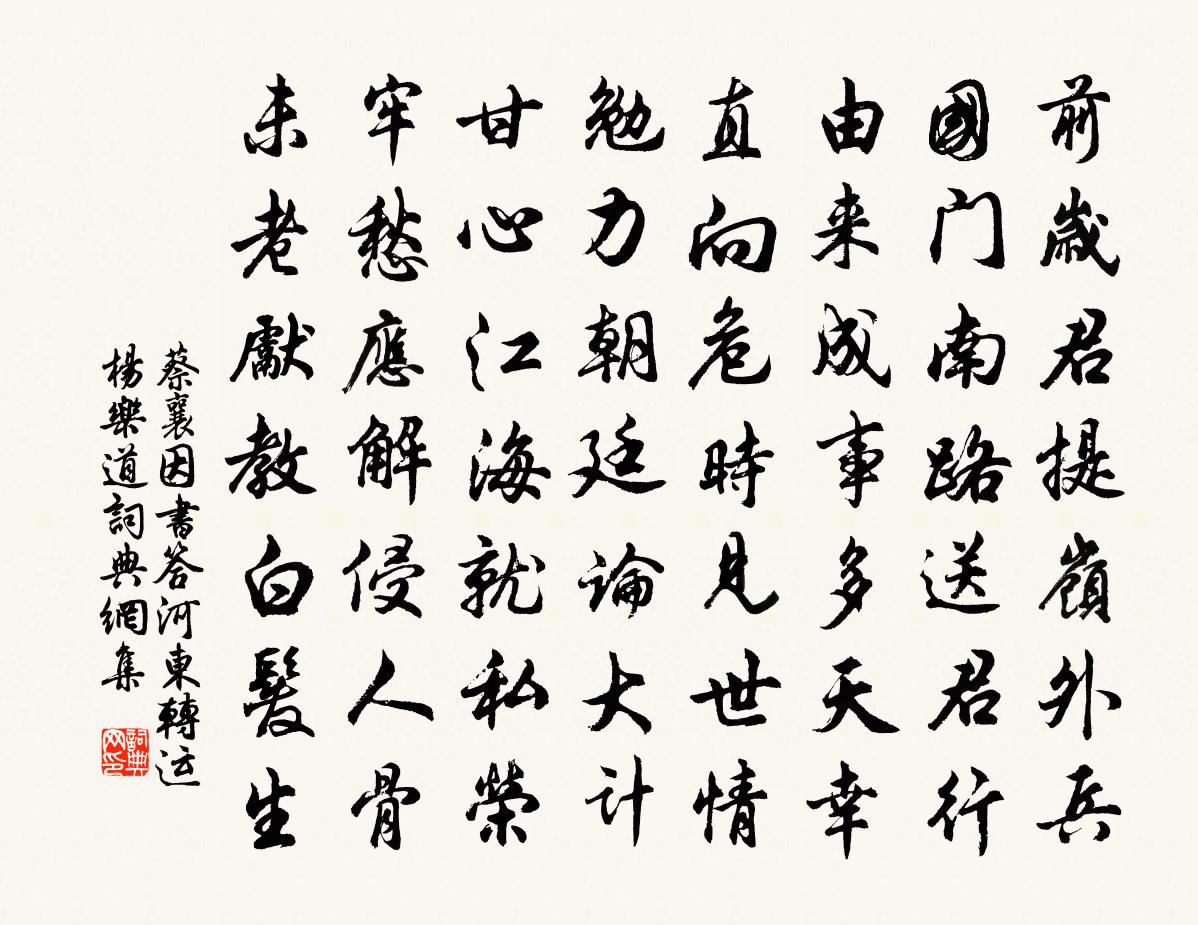 前歲君提嶺外兵
國门南路送君行
由来成事多天幸
直向危時見世情
勉力朝廷論大计
甘心江海就私榮
牢愁應解侵人骨
未老獻教白髮生
蔡襄因書答河東轉运
楊樂道詞典網集
詞典网印